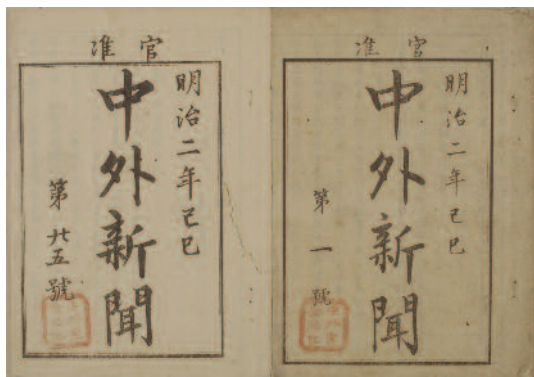 官准
明治二年己巳
中外新聞
第一號
官准
明治二年己巳
中外新聞
第廿五號